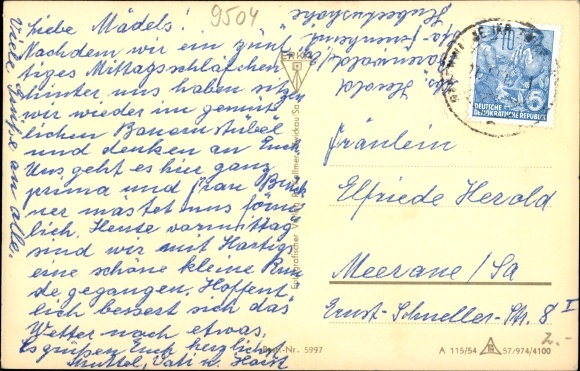 9504
Liebe Mädels!
Nachdem wir ein zünf
tiges Mittagsschläfchen
hinter uns haben sitzen
wir wieder im gemüt
lichen Bauernstübel
und denken an Euch
Uns geht es hier ganz
prima und Frau Brück
ner mästet uns förm
lich. Heute vormittag
sind wir mit Hartigs
eine schöne kleine Run
de gegangen. Hoffent
lich bessert sich das
Wetter noch etwas.
Es grüßen Euch herzlichst
Muttel, Vati u. Horst
Viele Grüße an alle.
Herold
Hubertushöhe
DEUTSCHE
DEMOKRATISCHE REPUBLIK
Fräulein
Elfriede Herold
Meerane/Sa
Ernst-Schneller-Str. 8 I
2.-
Nr. 5997
A 115/54
57/974/4100